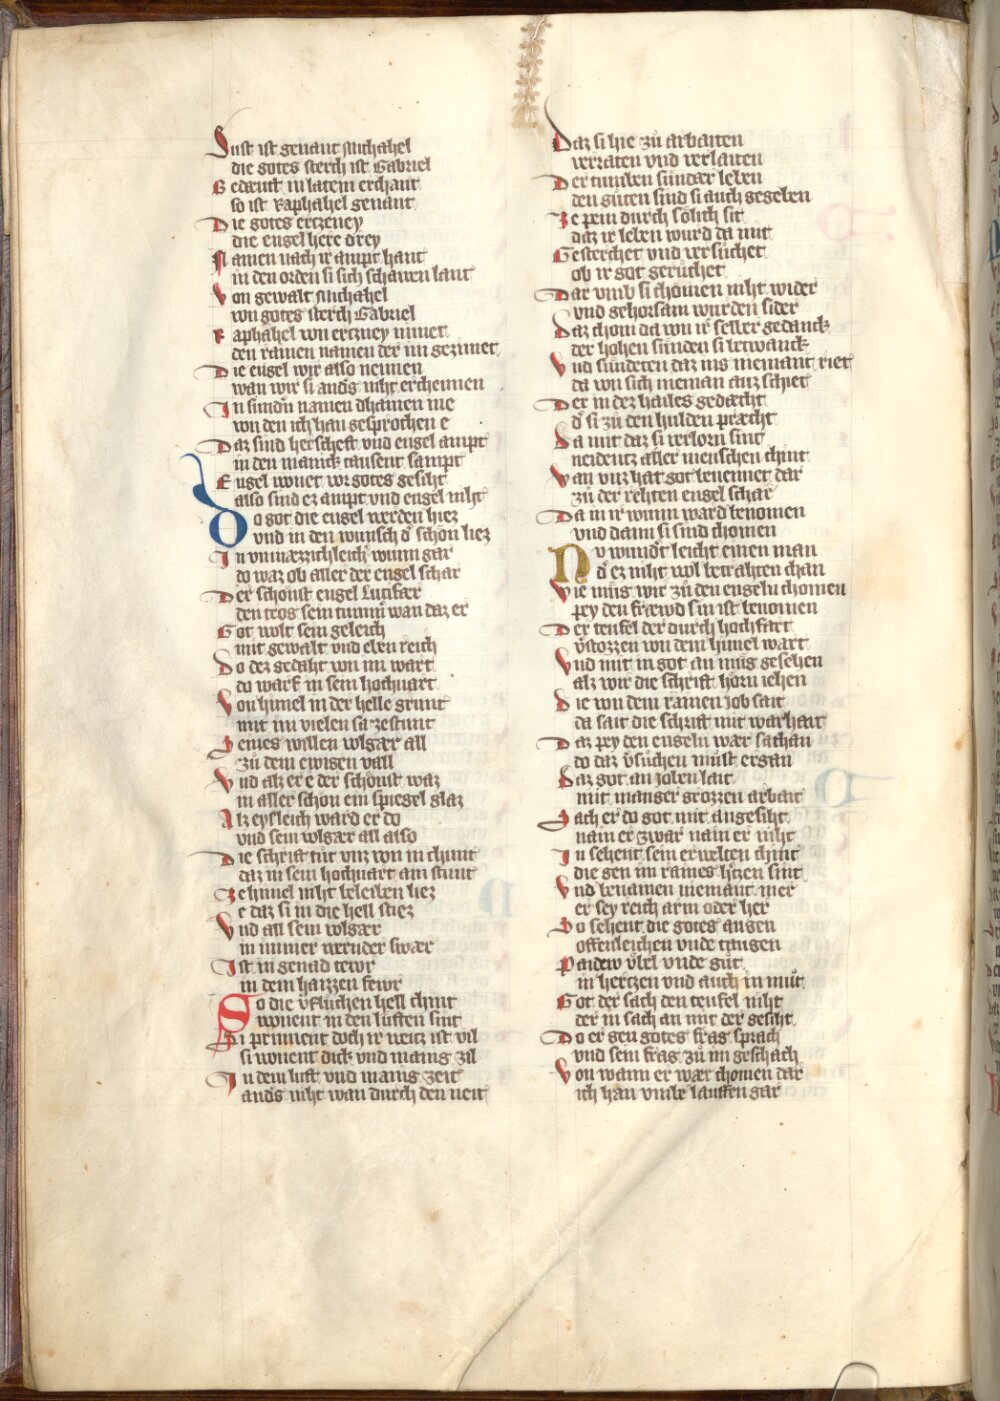 Sust ist genant Michahel
die gotes sterch ist Gabriel
Gedeut in latein erchant
so ist Raphahel genant
Die gotes ertzeney
die engel here drey
Namen nach ir ampt hant
in den orden si sich schawen lant
Von gewalt Michahel
von gotes sterch Gabriel
Raphahel von ertzney nimet
den rainen namen der im gezimet
Die engel wir also nennen
wan wir si anders niht erchennen
In sundern namen dhainen me
von den ich han gesprochen e
Daz sind herscheft vnd engel ampt
in den manick tausent sampt
Engel wonet vor gotes gesiht
also sind ez ampt vnd engel niht
Do got die engel werden hiez
vnd in den wunsch der schon liez
In vnuerzichleich wunn gar
do waz ob aller der engel schar
Der schonst engel Lucifær
den trog sein tumm wan daz er
Got wolt sein geleich
mit gewalt vnd eben reich
Do dez gedaht von im wart
do warf in sein hochuart
Von himel in der helle grunt
mit im vielen sa zestunt
Seines willen volgær all
zů dem ewigen vall
Vnd alz er e der schonst waz
in aller schon ein spiegel glaz
Alz eysleich ward er do
vnd sein volgær all also
Die schrift tůt vnz von in chunt
daz in sein hochuart ain stunt
Ze himel niht beleiben liez
e daz si in die hell stiez
Vnd all sein volgær
in immer wernder swær
Ist in genad tewr
in dem haizzen fewr
So die verfluchen hell chint
wonent in den lüften sint
Si prinnent doch ir weitz ist vil
si wonent dick vnd manig zil
In dem luft vnd manig zeit
anders niht wan durch den neit
Daz si hie zů arbaiten
verraten vnd verlaiten
Der tumben sünder leben
den gůten sind si auch gegeben
Ze pein durch sölich sit
daz ir leben wurd da mit
Gesterchet vnd versůchet
ob ir got gerůchet
Dar vmb si chomen niht wider
vnd gehorsam wurden sider
Daz chom da von ir selber gedanck
der hohen sünden si betwanck
Vnd sundeten daz ins niemant riet
da von sich nieman auz schiet
Der in dez hailes gedæcht
der si zů den hulden præcht
Da mit daz si verlorn sint
neident aller menschen chint
Wan vnz hat got benennet dar
zů der rehten engel schar
Da in ir wunn ward benomen
vnd dann si sind chomen
Nv wundert leicht einen man
der ez niht wol betrahten chan
Wie mügs wir zů den engeln chomen
pey den fræwd sin ist benomen
Der teufel der durch hochfart
verstozzen von dem himel wart
Vnd mit in got an müg gesehen
alz wir die schrift hörn iehen
Die von dem rainen Job sait
da sait die schrift mit warhait
Daz pey den engeln wær sathan
do daz versůchen můst ergan
Daz got an Joben lait
mit manger grozzen arbait
Sach er do got mit angesiht
nain er zwar nain er niht
In sehent sein erwelten chint
die gen im raines hertzen sint
Vnd benamen niemant mer
er sey reich arm oder her
So sehent die gotes augen
offenleichen vnde taugen
Paidew vbel vnde gůt
in hertzen vnd auch in můt
Got der sach den teufel niht
der in sach an mit der gesiht
Do er gen gotes frag sprach
vnd sein frag zů im geschach
Von wann er wær chomen dar
ich han vmbe lauffen gar